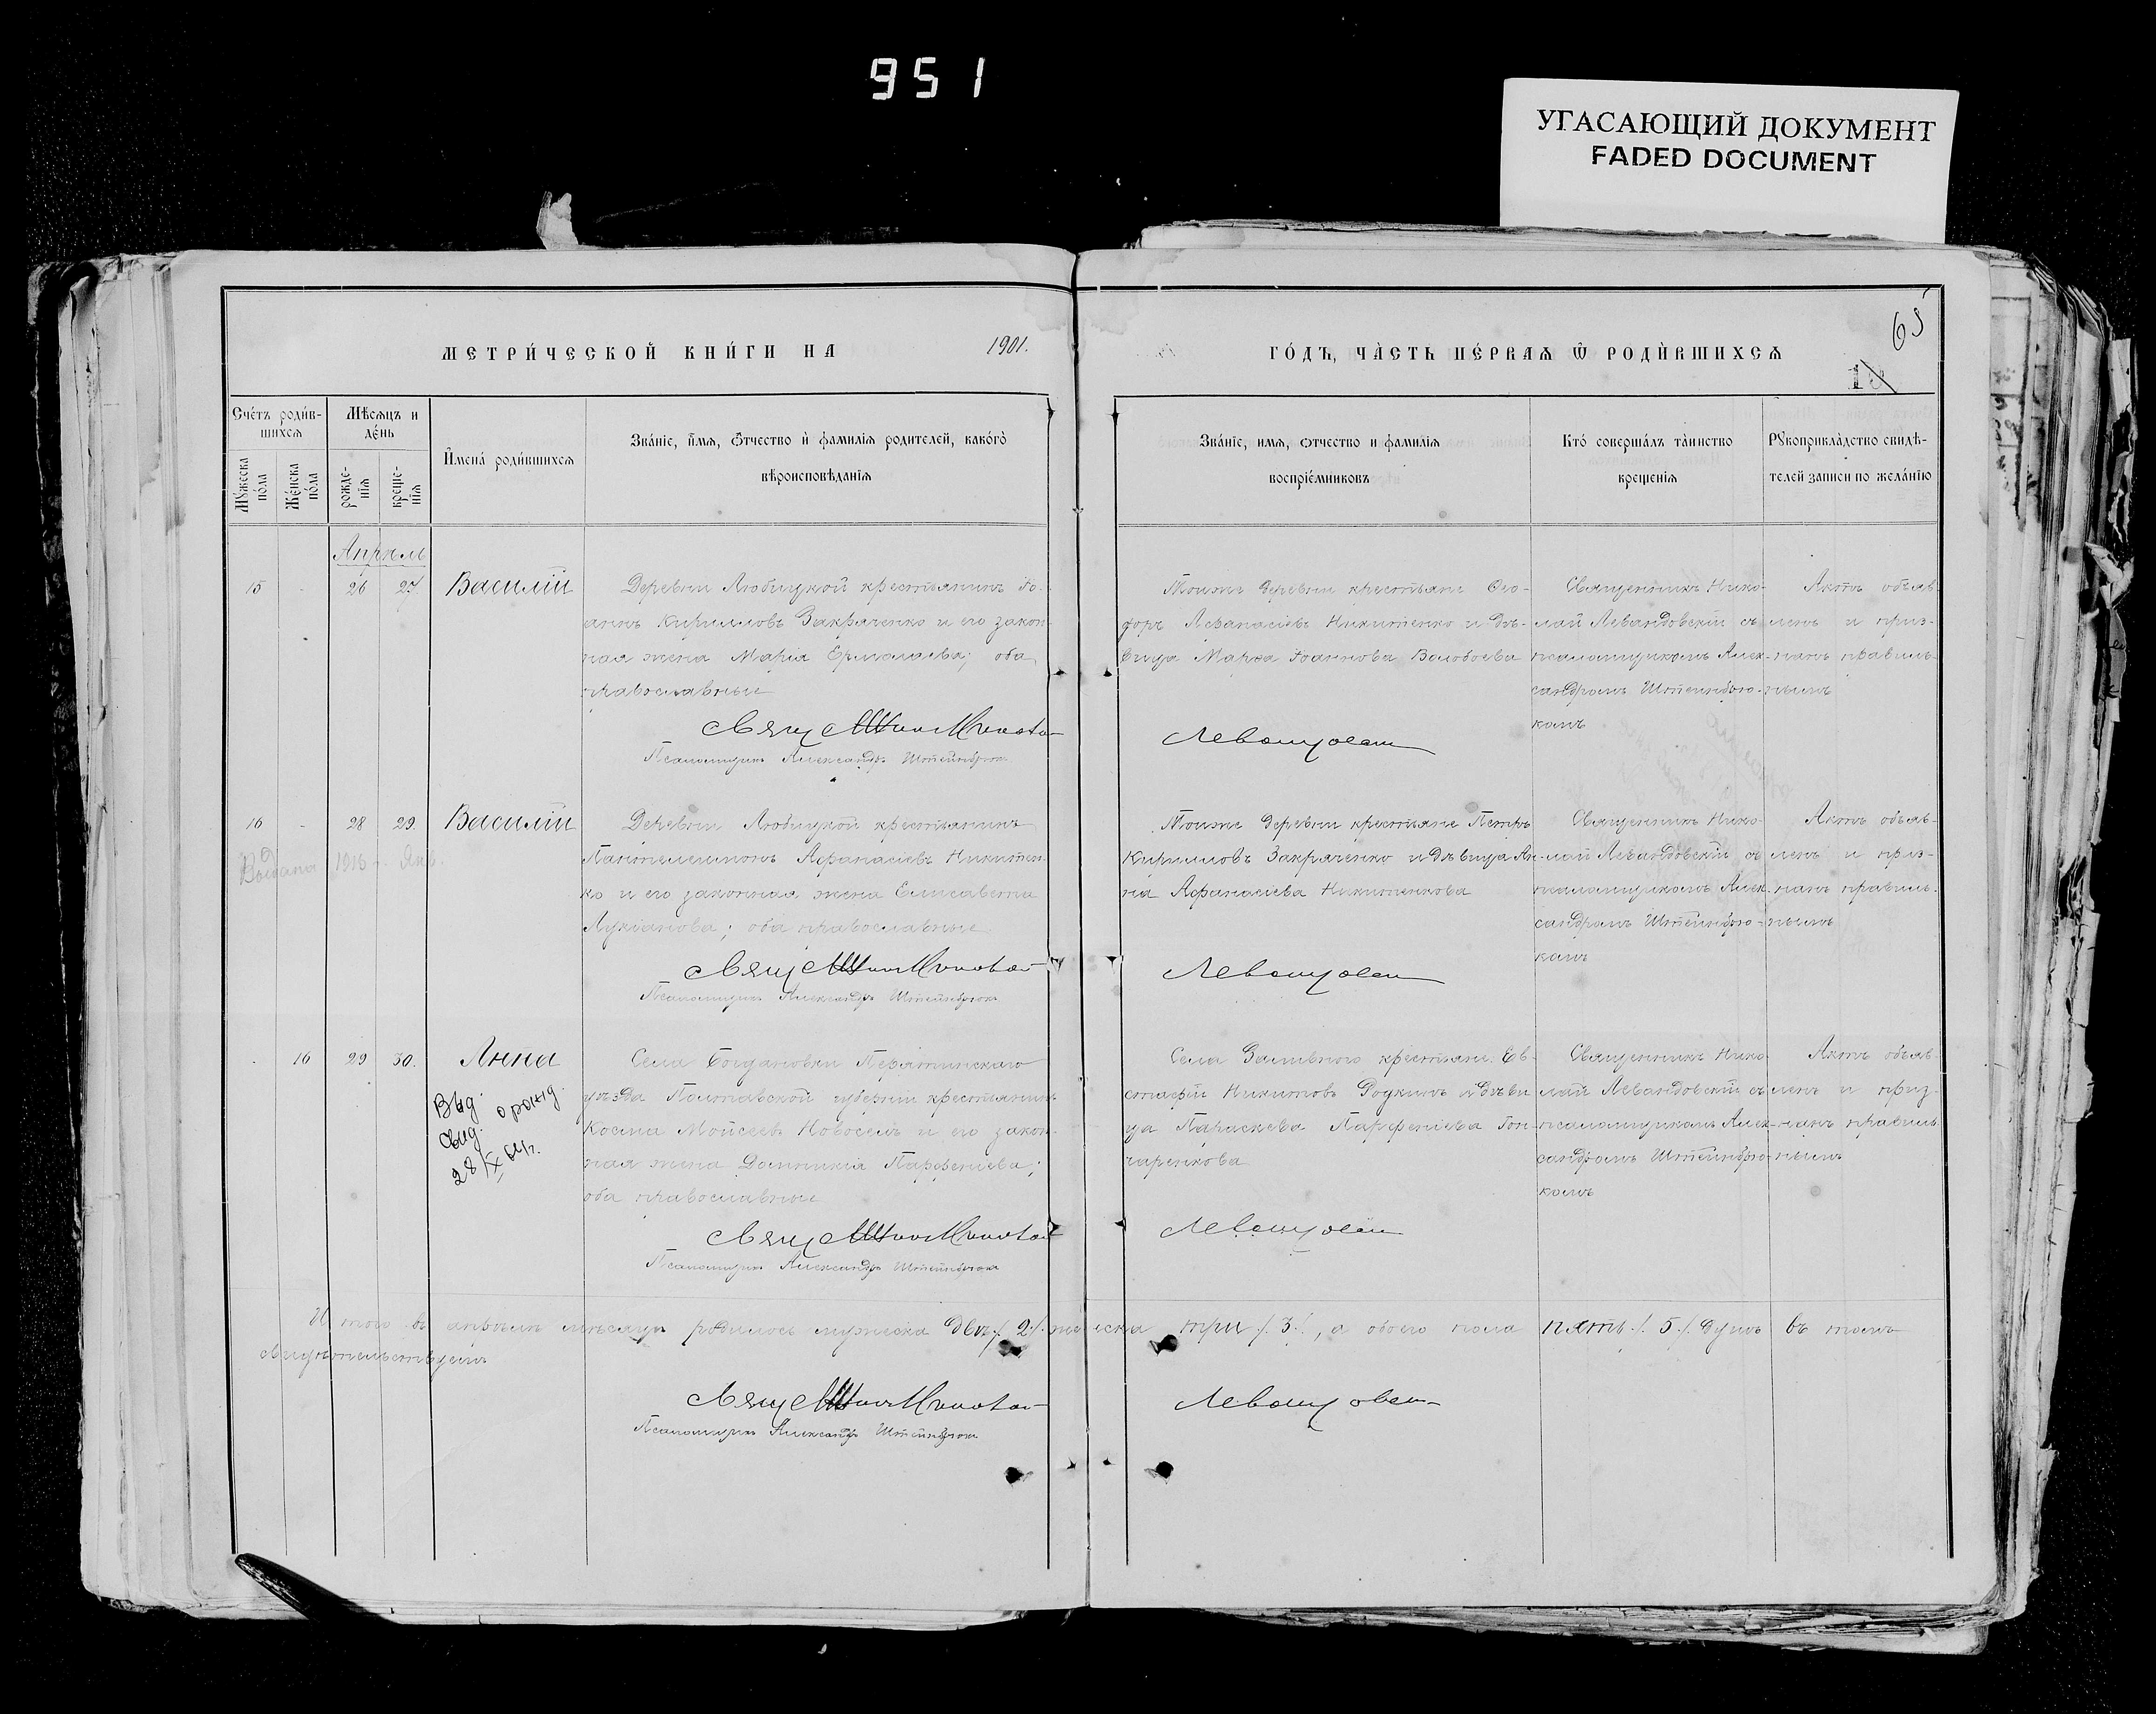 951
УГАСАЮЩИЙ ДОКУМЕНТ
FADED DOCUMENT
65
МЕТРИ́ЧЕСКОЙ КНИ́ГИ НА 1901. ГО́ДЪ, ЧА̀СТЬ ПЕ́РВАѦ Ѿ РОДЍВШИХСѦ
Сче́тъ роди́в-
шихсѧ
Мꙋ́жеска по́ла
Же́нска по́ла
Мѣ́сѧцъ и
де́нь
рожде-
нїѧ
креще-
нїѧ
И҆мена̀ роди́вшихсѧ
Зва́нїе, и҆́мѧ, ѻ҆́тчество и҆ фамилїѧ родителей, како́гѡ
вѣроисповѣданїѧ
Зва́нїе, имѧ, ѻтчество и фамилїѧ
воспрїе́мниковъ
Кто́ соверша́лъ та̀инство
крещенїѧ
Рꙋкоприкла̀дство свидѣ-
телей записи по жела́нїю
Апрѣль
15 - 26 27. Василій
Деревни Любицкой крестьянинъ Іо-
аннъ Кирилловъ Закряченко и его закон-
ная жена Марія Ермолаева; оба
православные
Псаломщикъ Александръ Штейнбрюкъ
Тойже деревни крестьяне Ѳео-
доръ Аѳанасіевъ Никитенко и дѣ-
вица Марѳа Іоаннова Волобоева
Левандовскій
Священникъ Нико-
лай Левандовскій съ
псаломщикомъ Алек-
сандромъ Штейнбрю-
комъ
Актъ объяв-
ленъ и приз-
нанъ правиль-
нымъ
16 - 28 29. Василій
Выдана 1916 г. Янв.
Деревни Любицкой крестьянинъ
Пантелеимонъ Аѳанасіевъ Никитен-
ко и его законная жена Елисавета
Лукіанова; оба православные
Псаломщикъ Александръ Штейнбрюкъ
Тойже деревни крестьяне Петръ
Кирилловъ Закряченко и дѣвица Ан-
на Аѳанасіева Никитенкова
Левандовскій
Священникъ Нико-
лай Левандовскій съ
псаломщикомъ Алек-
сандромъ Штейнбрю-
комъ
Актъ объяв-
ленъ и приз-
нанъ правиль-
нымъ
- 16 29 30. Анна
Выд.
свид. о рожд.
28/X
Села Богдановки Пирятинскаго
уѣзда Полтавской губерніи крестьянинъ
Косма Моисеевъ Новоселъ и его закон-
ная жена Домникія Парѳеніева;
оба православные
Псаломщикъ Александръ Штейнбрюкъ
Села Заливного крестьяне: Ев-
стаѳій Никитовъ Родкинъ и дѣви-
ца Параскева Парѳеніева Гон-
чаренкова
Левандовскій
Священникъ Нико-
лай Левандовскій съ
псаломщикомъ Алек-
сандромъ Штейнбрю-
комъ
Актъ объяв-
ленъ и приз-
нанъ правиль-
нымъ
Итого въ апрѣлѣ мѣсяцѣ родилось мужеска двѣ /.2./. женска три /.3./, а обоего пола пять ./.5./. душъ въ томъ
свидѣтельствуемъ
Псаломщикъ Александръ Штейнбрюкъ
Левандовскій